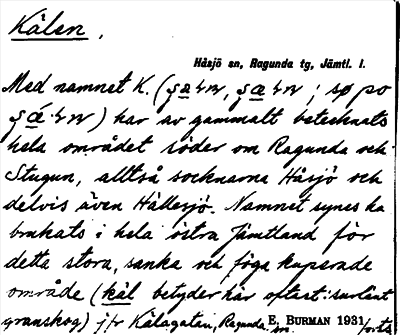 Kälen.
Håsjö sn, Ragunda tg, Jämtl. l.
Med namnet K. ( ; sø på
) har av gammalt betecknats
hela området söder om Ragunda och
Stugun, alltså socknarna Håsjö och
delvis även Hällesjö. Namnet synes ha
brukats i hela östra Jämtland för
detta stora, sanka och föga kuperade
område (käl betyder här oftast: surlänt
granskog) jfr Kälagatan, Ragunda sn. E. BURMAN 1931